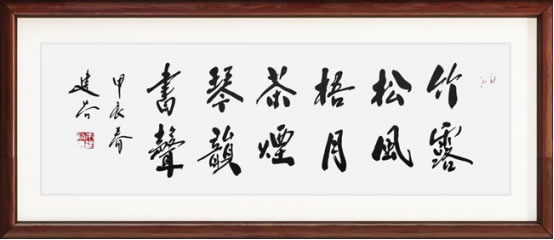 竹露
松風
梧月
茶煙
琴韻
書聲
甲辰春
建谷